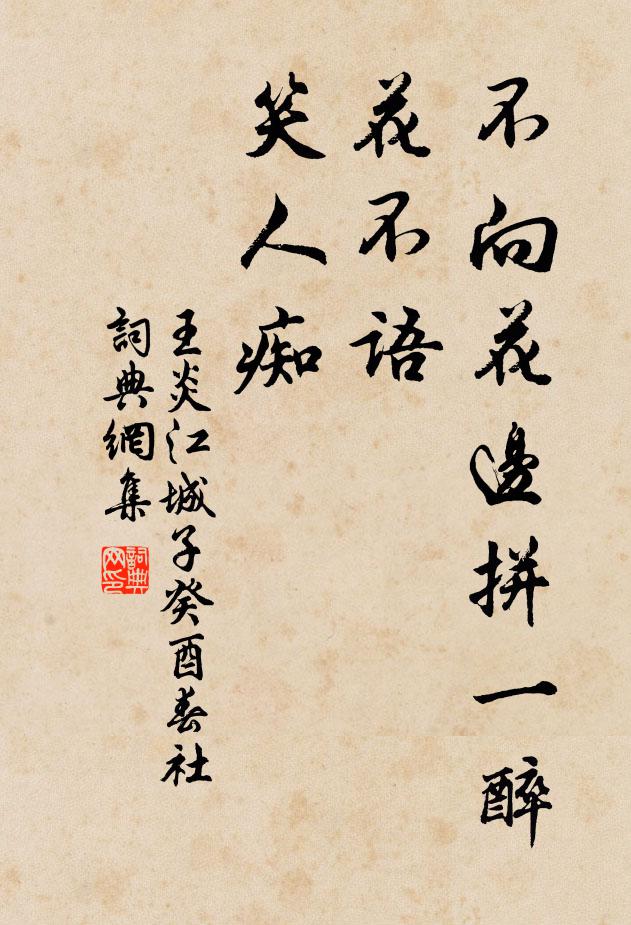 不向花邊拼一醉
花不語
笑人痴
王炎江城子癸酉春社
詞典網集
詞典网印